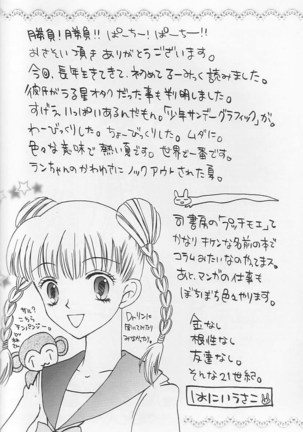 勝負!勝負!!ぱーちー!ぱーちー!!
おさそい頂きありがとうございます。
今回、長年生きてきて、初めてるーみっく読みました。
彼氏がうる星オタクだった事も判明しました。
すげえいっぱいあるんだもん。「少年サンデーグラフィック」が。
わーびっくりした。ちょーびっくりした。ムダに。
色々な美味で熱い夏です。世界で一番です。
ランちゃんのかわゆさにノックアウトされた夏。
司書房の「プッチモエ」て
かなりキケンな名前の本で
コラムみたいなのやってます。
あと、マンガの仕事も
ぼちぼち色々やります。
金なし
根性なし
友達なし。
そんな21世紀。
こちら